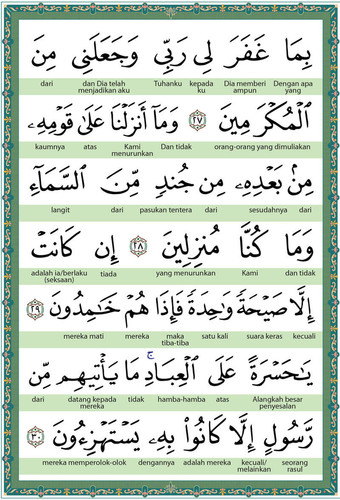 بِمَا غَفَرَ لِى رَبِّى وَجَعَلَنِى مِنَ
dari dan Dia telah menjadikan aku Tuhanku kepada ku Dia memberi ampun Dengan apa yang
ٱلْمُكْرَمِينَ ٢٧ وَمَآ أَنزَلْنَا عَلَىٰ قَوْمِهِۦ
kaumnya atas Kami menurunkan Dan tidak orang-orang yang dimuliakan
مِنۢ بَعْدِهِۦ مِن جُندٍ مِّنَ ٱلسَّمَآءِ
langit dari pasukan tentera dari sesudahnya dari
وَمَا كُنَّا مُنزِلِينَ ٢٨ إِن كَانَتْ
adalah ia/berlaku (seksaan) tiada yang menurunkan Kami dan tidak
إِلَّا صَيْحَةً وَٰحِدَةً فَإِذَا هُمْ خَـٰمِدُونَ ٢٩
mereka mati mereka maka tiba-tiba satu kali suara keras kecuali
يَـٰحَسْرَةً عَلَى ٱلْعِبَادِ ۚ مَا يَأْتِيهِم مِّن
dari datang kepada mereka tidak hamba-hamba atas Alangkah besar penyesalan
رَّسُولٍ إِلَّا كَانُوا۟ بِهِۦ يَسْتَهْزِءُونَ ٣٠
mereka memperolok-olok dengannya adalah mereka kecuali/melainkan seorang rasul